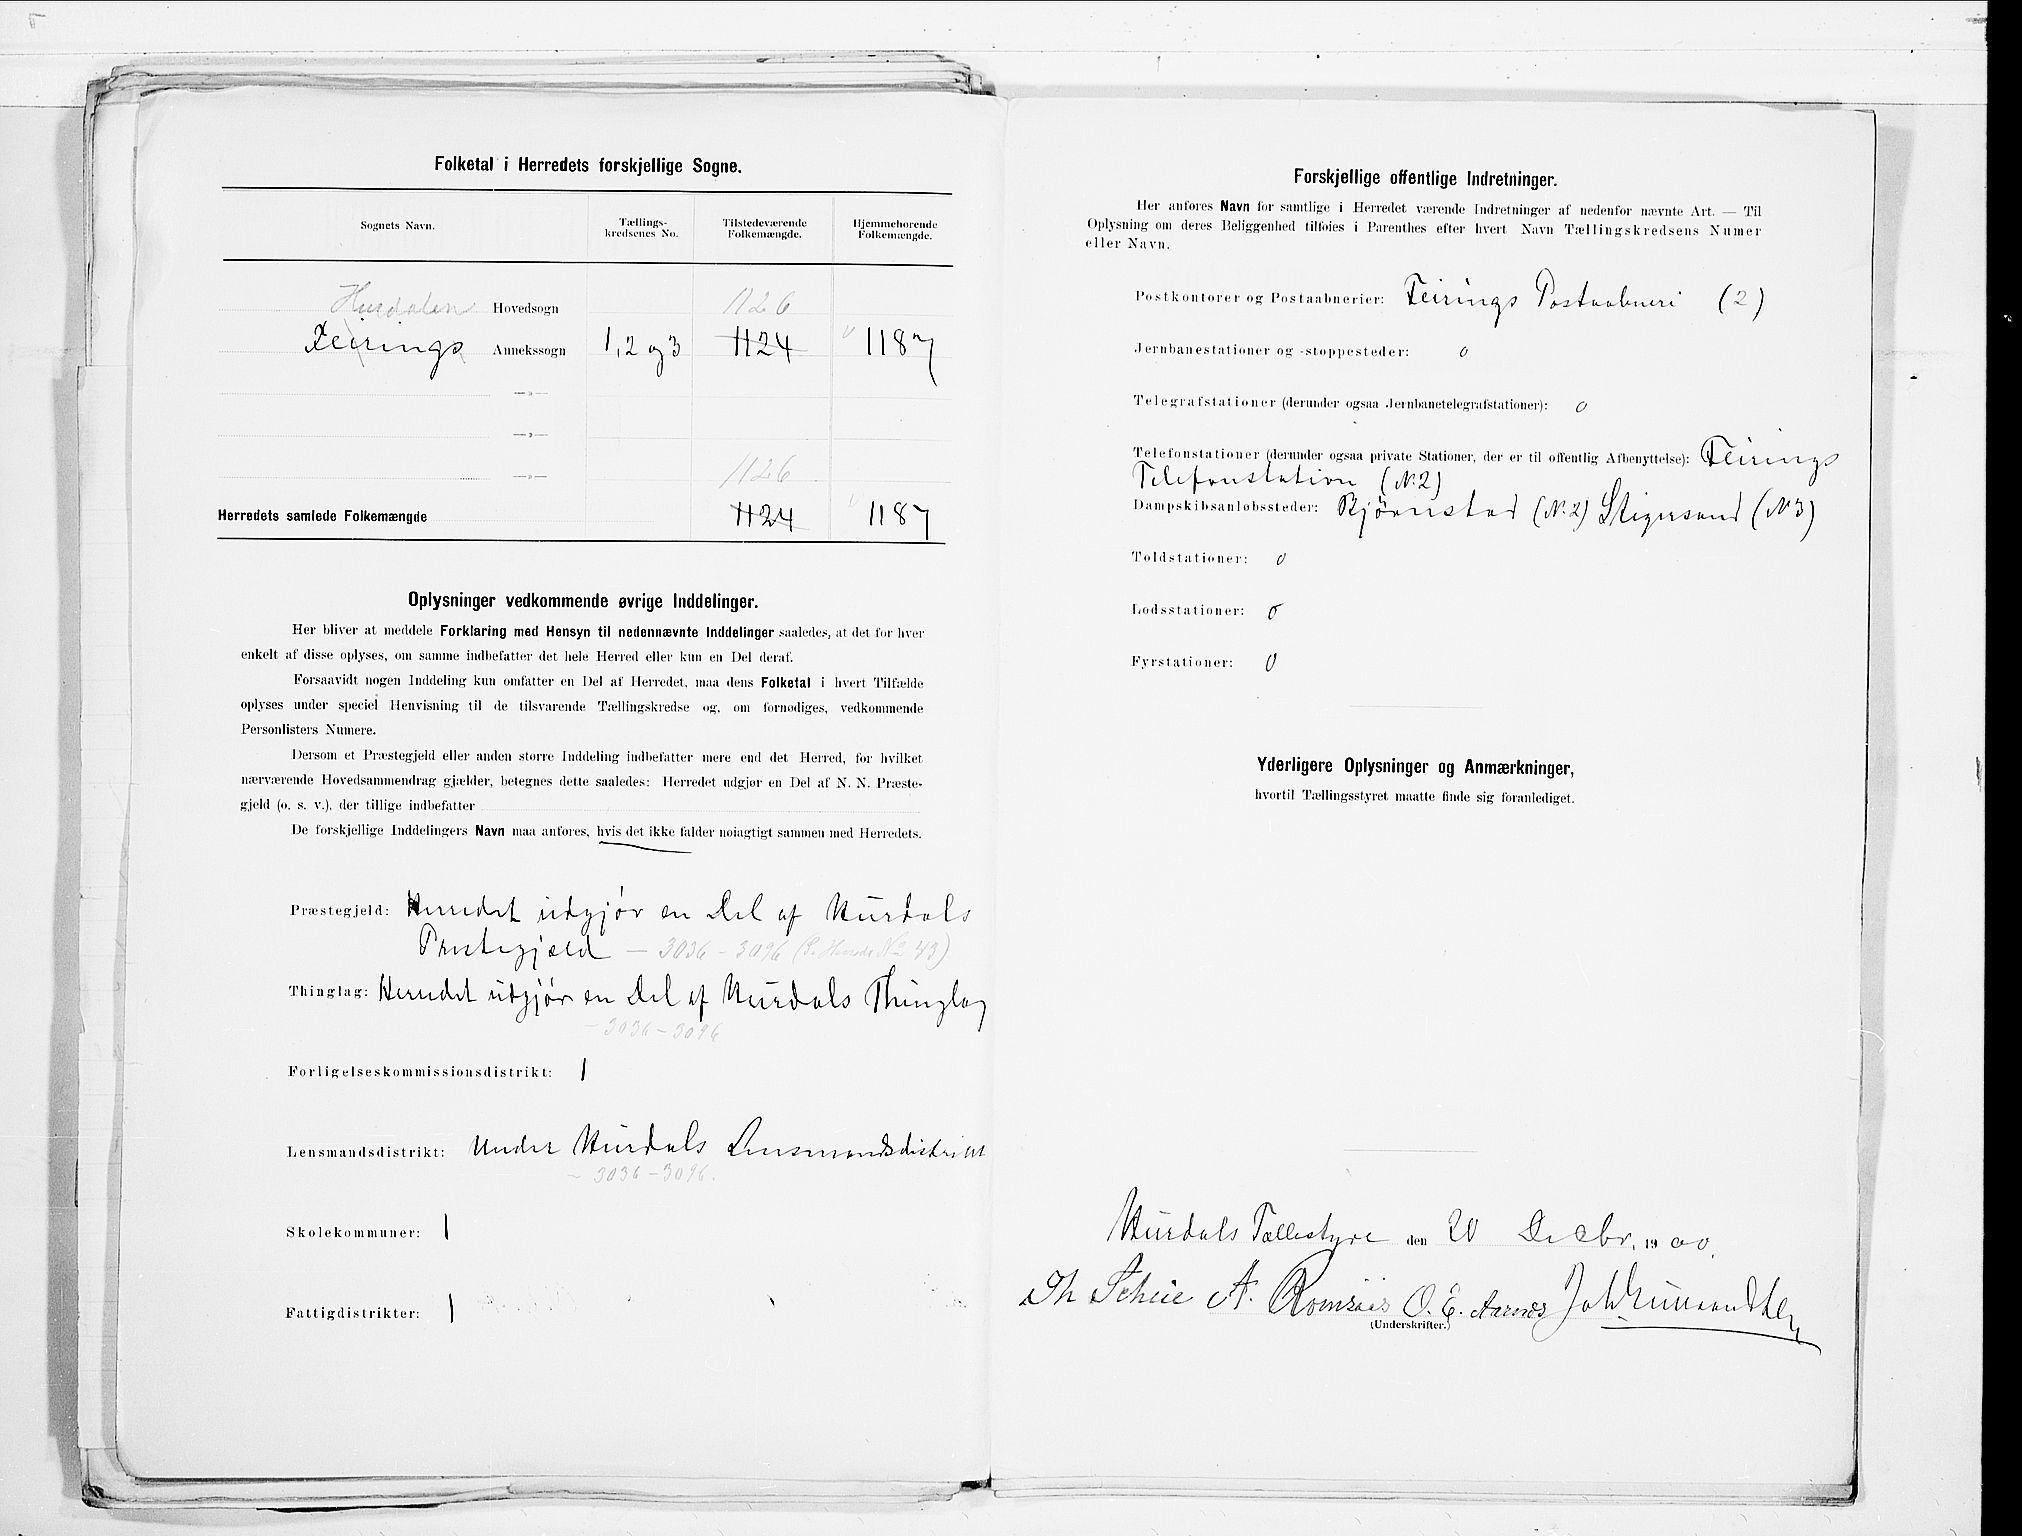 Folketal i Herredets forskjellige Sogne.
Sognets Navn.
Tællings-
kredsenes No.
Tilstedeværende
Folkemængde.
Hjemmehørende
Folkemængde.
Hurdalen Hovedsogn 1126
Feirings Annekssogn 1, 2 og 3 1124 1187
—„—
—„—
—„— 1126
Herredets samlede Folkemængde 1124 1187
Oplysninger vedkommende øvrige Inddelinger.
Her bliver at meddele Forklaring med Hensyn til nedennævnte Inddelinger saaledes, at det for hver
enkelt af disse oplyses, om samme indbefatter det hele Herred eller kun en Del deraf.
Forsaavidt nogen Inddeling kun omfatter en Del af Herredet, maa dens Folketal i hvert Tilfælde
oplyses under speciel Henvisning til de tilsvarende Tællingskredse og, om fornødiges, vedkommende
Personlisters Numere.
Dersom et Præstegjeld eller anden større Inddeling indbefatter mere end det Herred, for hvilket
nærværende Hovedsammendrag gjælder, betegnes dette saaledes: Herredet udgjør en Del af N. N. Præste-
gjeld (o. s. v.), der tillige indbefatter
De forskjellige Inddelingers Navn maa anføres, hvis det ikke falder nøiagtigt sammen med Herredets.
Præstegjeld: Herredet udgjør en Del af Hurdals
Præstegjæld — 3036 - 3096 (S. Herreds No 43)
Thinglag: Herredet udgjør en Del af Hurdals Thinglag
- 3036 - 3096
Forligelseskommissionsdistrikt: 1
Lensmandsdistrikt: Under Hurdals Lensmandsdistrikt
- 3036 - 3096.
Skolekommuner: 1
Fattigdistrikter: 1
Forskjellige offentlige Indretninger.
Her anføres Navn for samtlige i Herredet værende Indretninger af nedenfor nævnte Art. — Til
Oplysning om deres Beliggenhed tilføies i Parenthes efter hvert Navn Tællingskredsens Numer
eller Navn.
Postkontorer og Postaabnerier: Feirings Postaabneri (2)
Jernbanestationer og -stoppesteder: 0
Telegrafstationer (derunder ogsaa Jernbanetelegrafstationer): 0
Telefonstationer (derunder ogsaa private Stationer, der er til offentlig Afbenyttelse): Feirings
Telefonstation (N. 2)
Dampskibsanløbssteder: Bjørnstad (N. 2) Stigersand (N 3)
Toldstationer: 0
Lodsstationer: 0
Fyrstationer: 0
Yderligere Oplysninger og Anmærkninger,
hvortil Tællingsstyret maatte finde sig foranlediget.
Hurdals Tællestyre den 20 Decbr. 1900.
Th Scheie A. Romsaas O. E. Aarnes
(Underskrifter.)